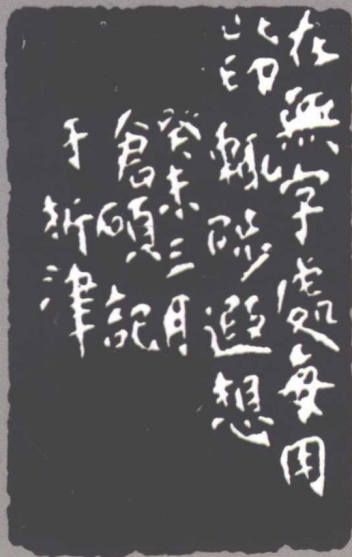 在無字處每用
此印輒遐想
癸未三月
倉碩記
于析津